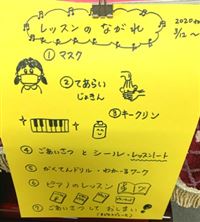 レッスンの ながれ
2020
3/12～
①マスク
②てあらい
じょきん
③キークリン
④ごあいさつ と シール・レッスンノート
⑤がくてんドリル・わかーるワーク
⑥ピアノのレッスン
⑦ごあいさつ して おしまい